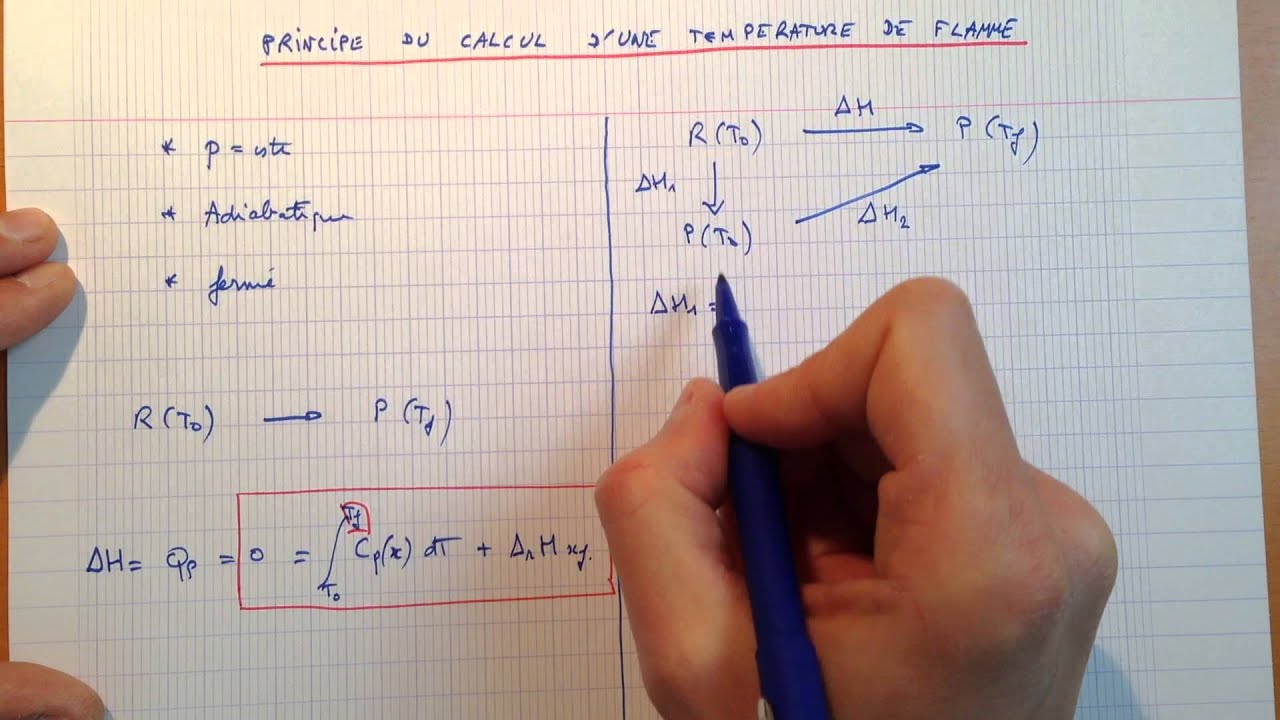 PRINCIPE DU CALCUL D'UNE TEMPERATURE DE FLAMME
* p = cste
* Adiabatique
* fermé
R(T₀) → P(T_f)
ΔH = Q_p = 0 = ∫_{T₀}^{T_f} C_p(x) dT + Δ_r H x_f.
ΔH
R(T₀) → P(T_f)
ΔH₁ ↓
ΔH₂
P(T₀)
ΔH₁ =